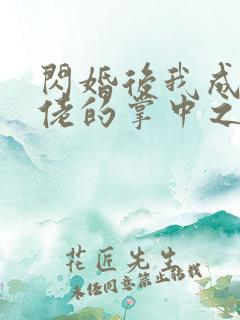 閃婚後我成
佬的掌中之
花匠先生
未经同意禁止转载